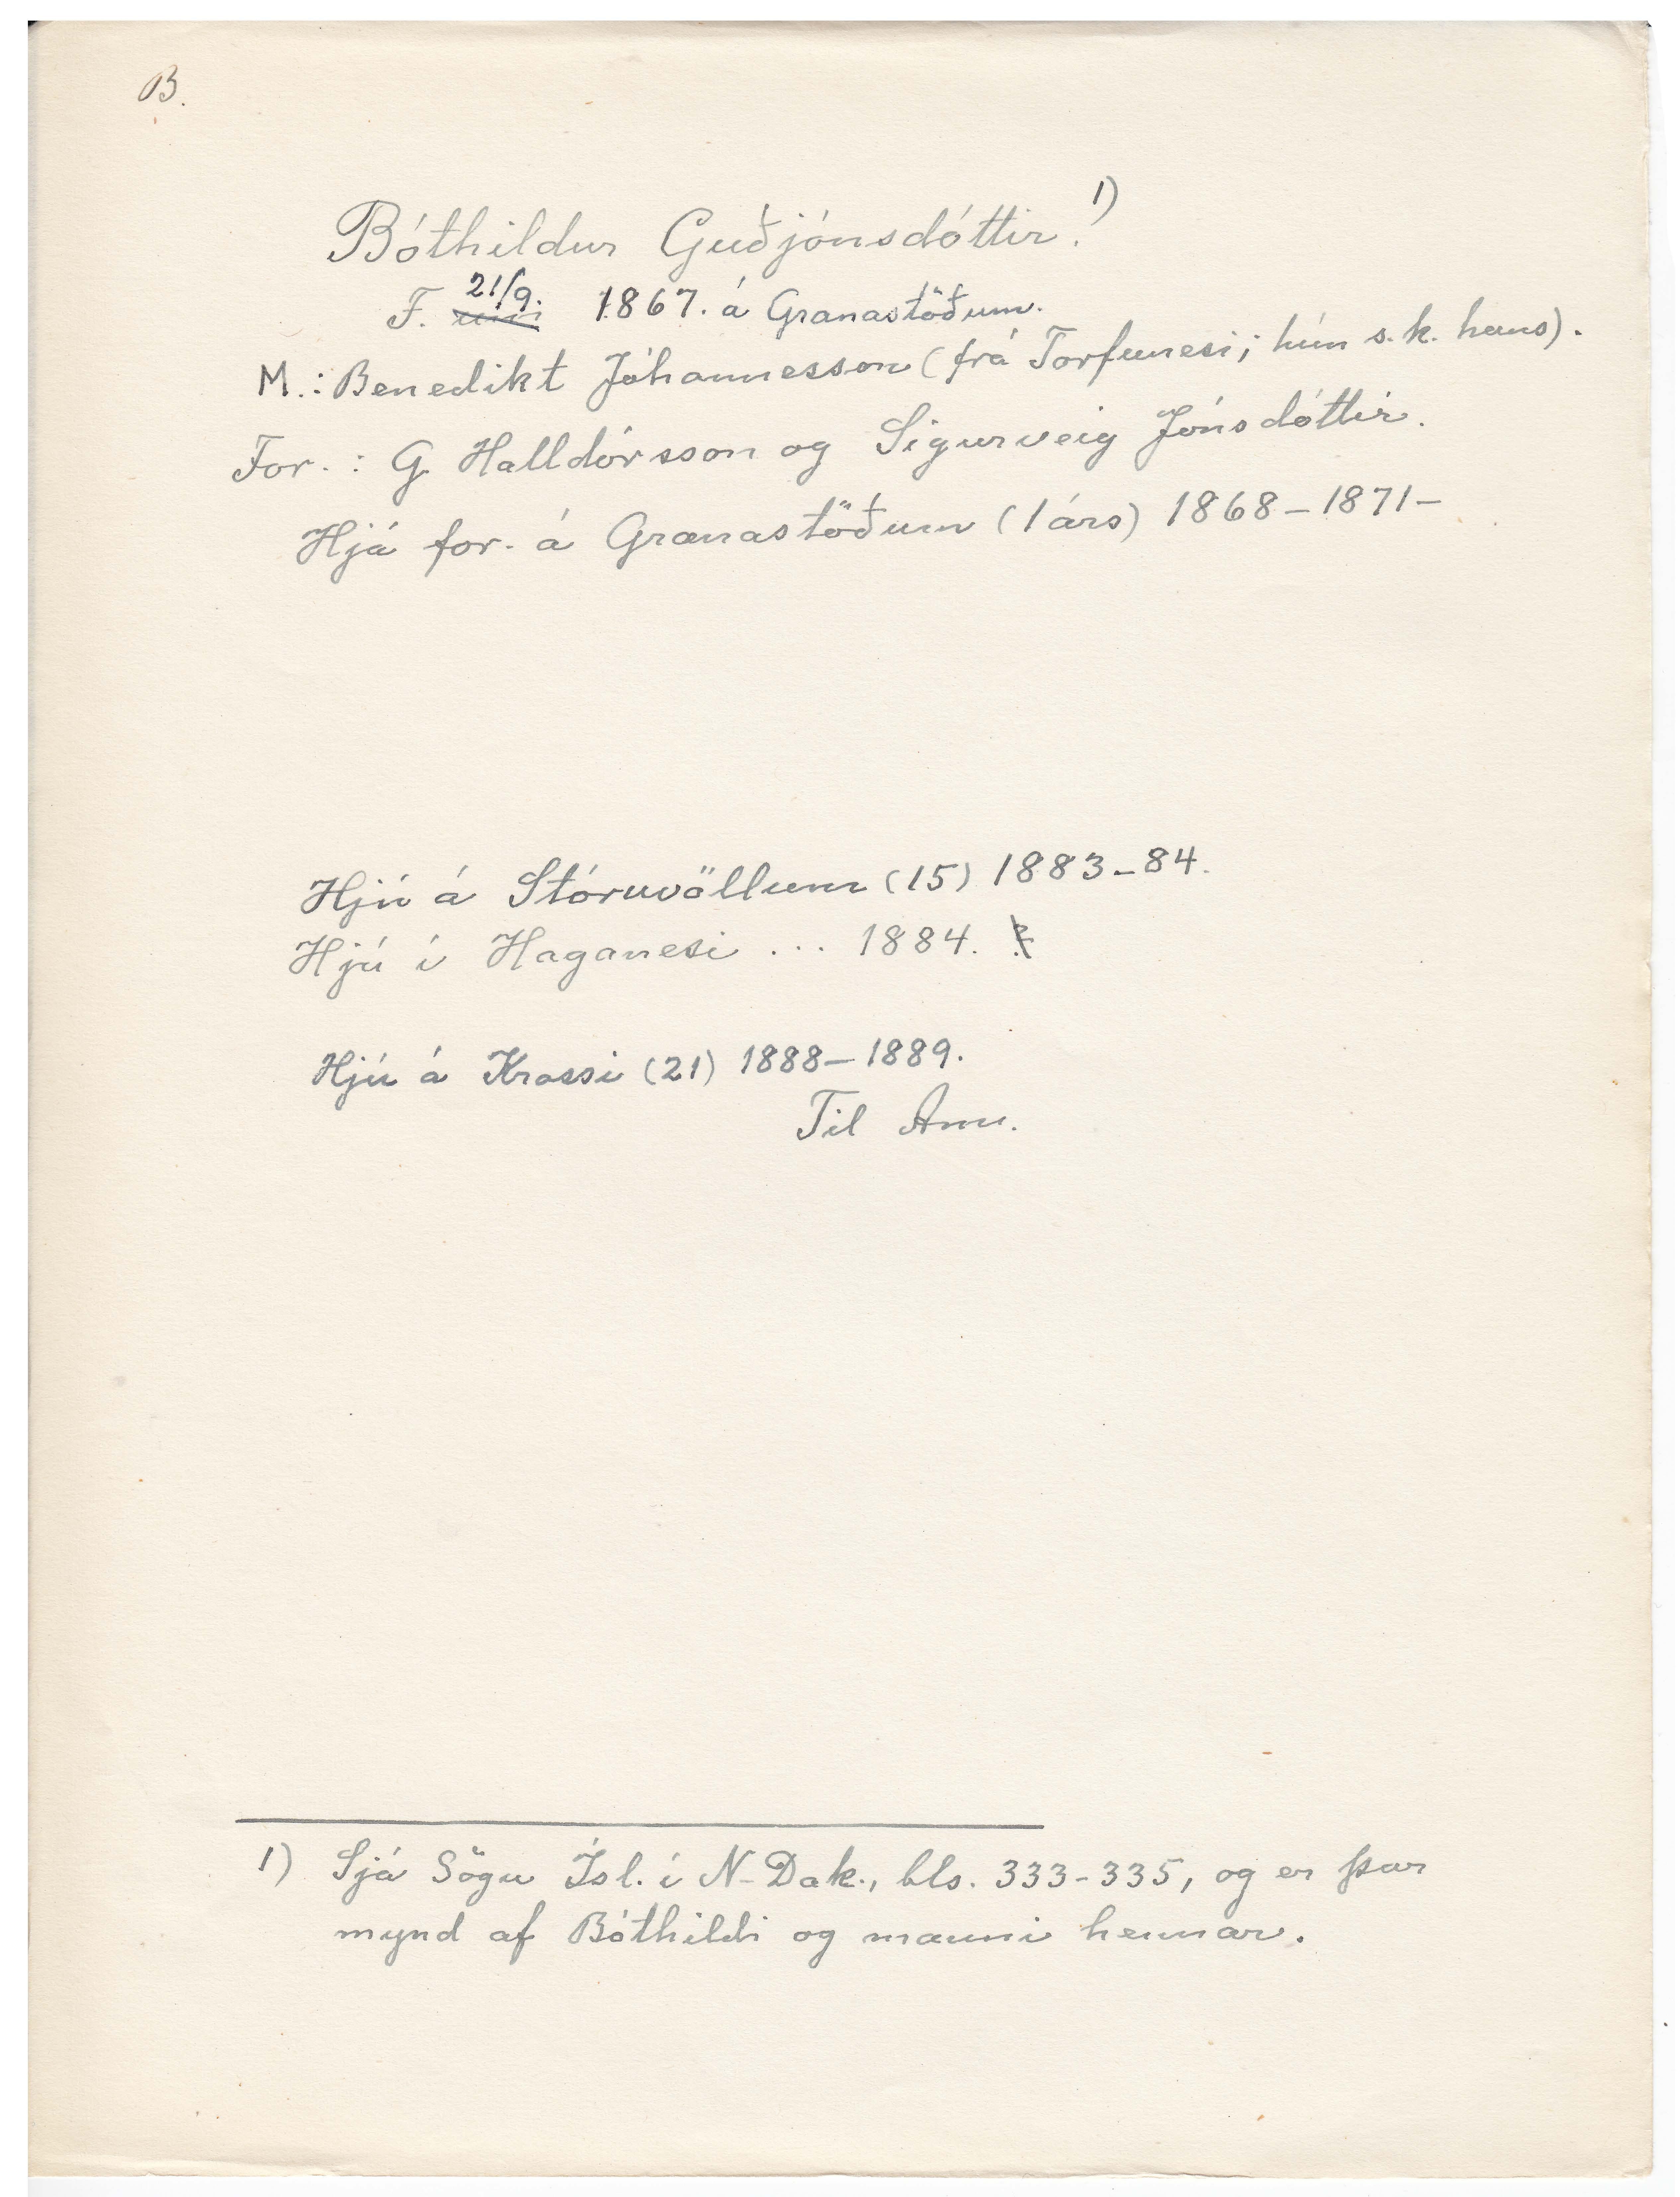 B.
Bóthildur Guðjónsdóttir.1)
F. 21/9. 1867. á Granastöðum.
M.: Benedikt Jóhannesson (frá Torfunesi; hún s.k. hans).
For. : G Halldórsson og Sigurveig Jónsdóttir.
Hjá for. á Granastöðum (1 árs) 1868–1871–
Hjú á Stóruvöllum (15) 1883–84.
Hjú í Haganesi ... 1884.
Hjú á Krossi (21) 1888–1889.
Til Am.
1) Sjá Sögu Ísl. í N-Dak., bls. 333-335, og er þar
mynd af Bóthildi og manni hennar.